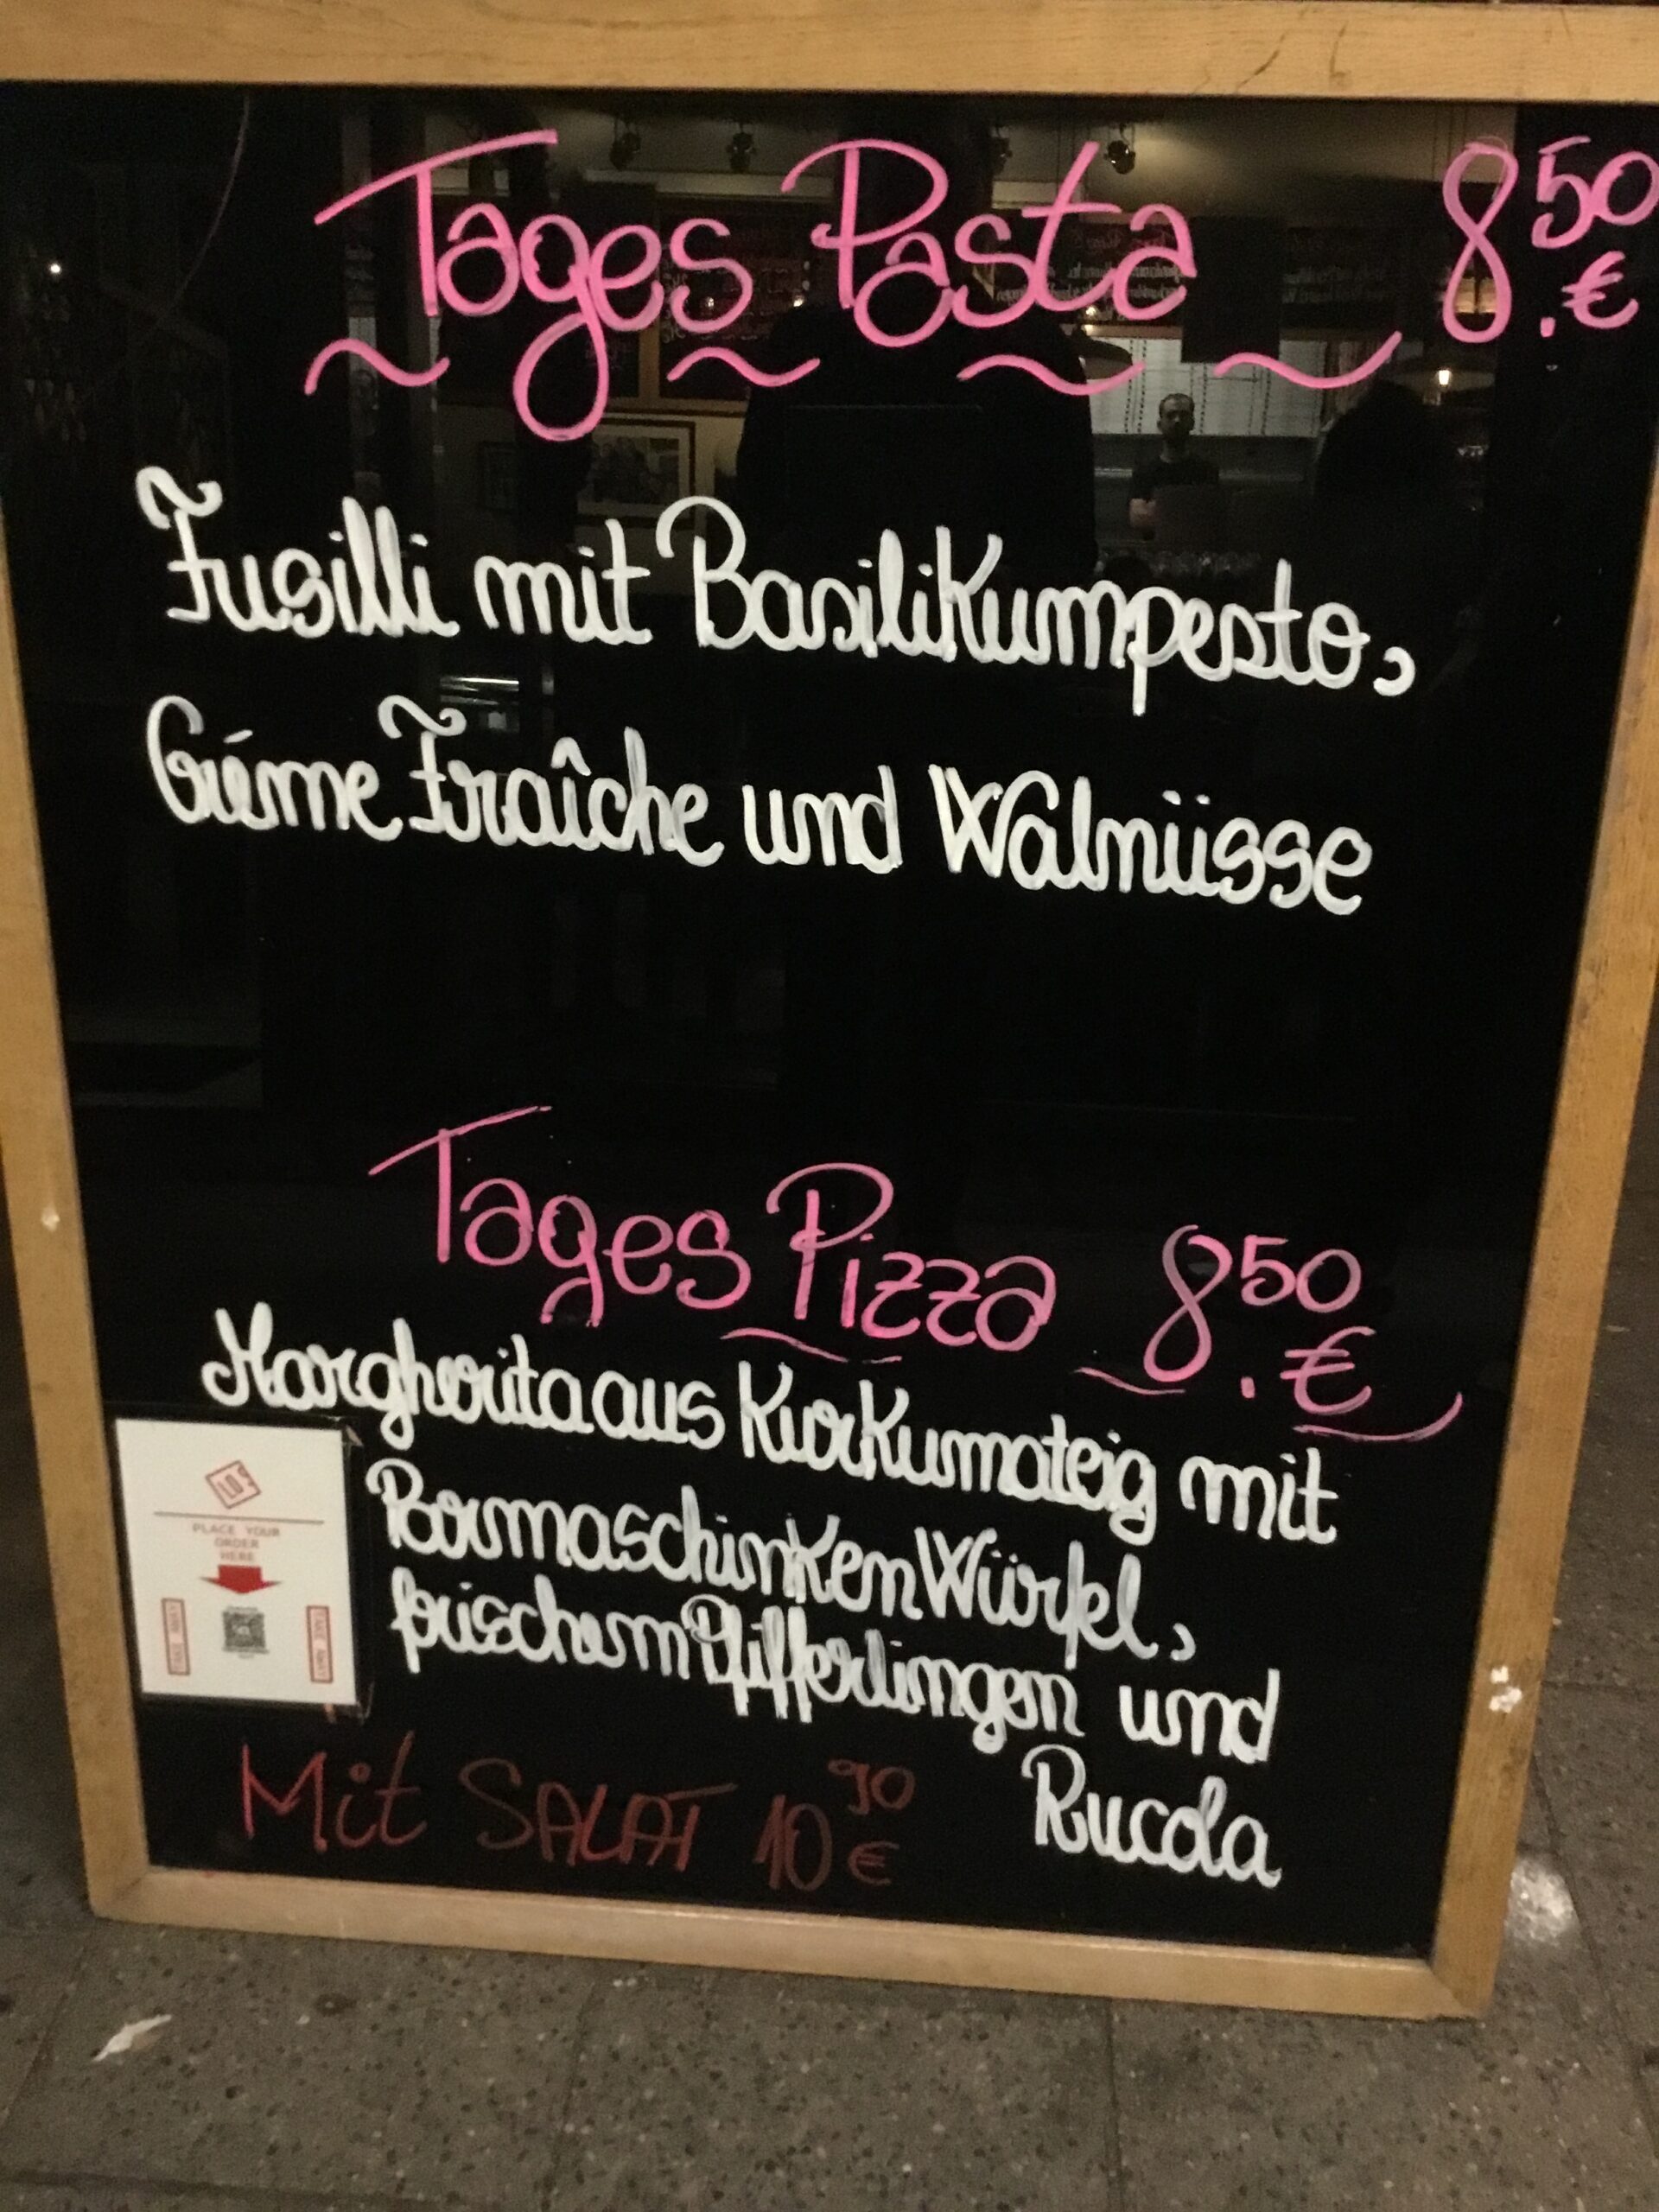 Tages Pasta 8.50 €
Fusilli mit Basilikumpesto,
Créme Fraîche und Walnüsse
Tages Pizza 8.50 €
Margherita aus Kurkumateig mit
Parmaschinken Würfel,
frischem Pfifferlingen und
Rucola
PLACE YOUR
ORDER
HERE
Mit SALAT 10 90 €